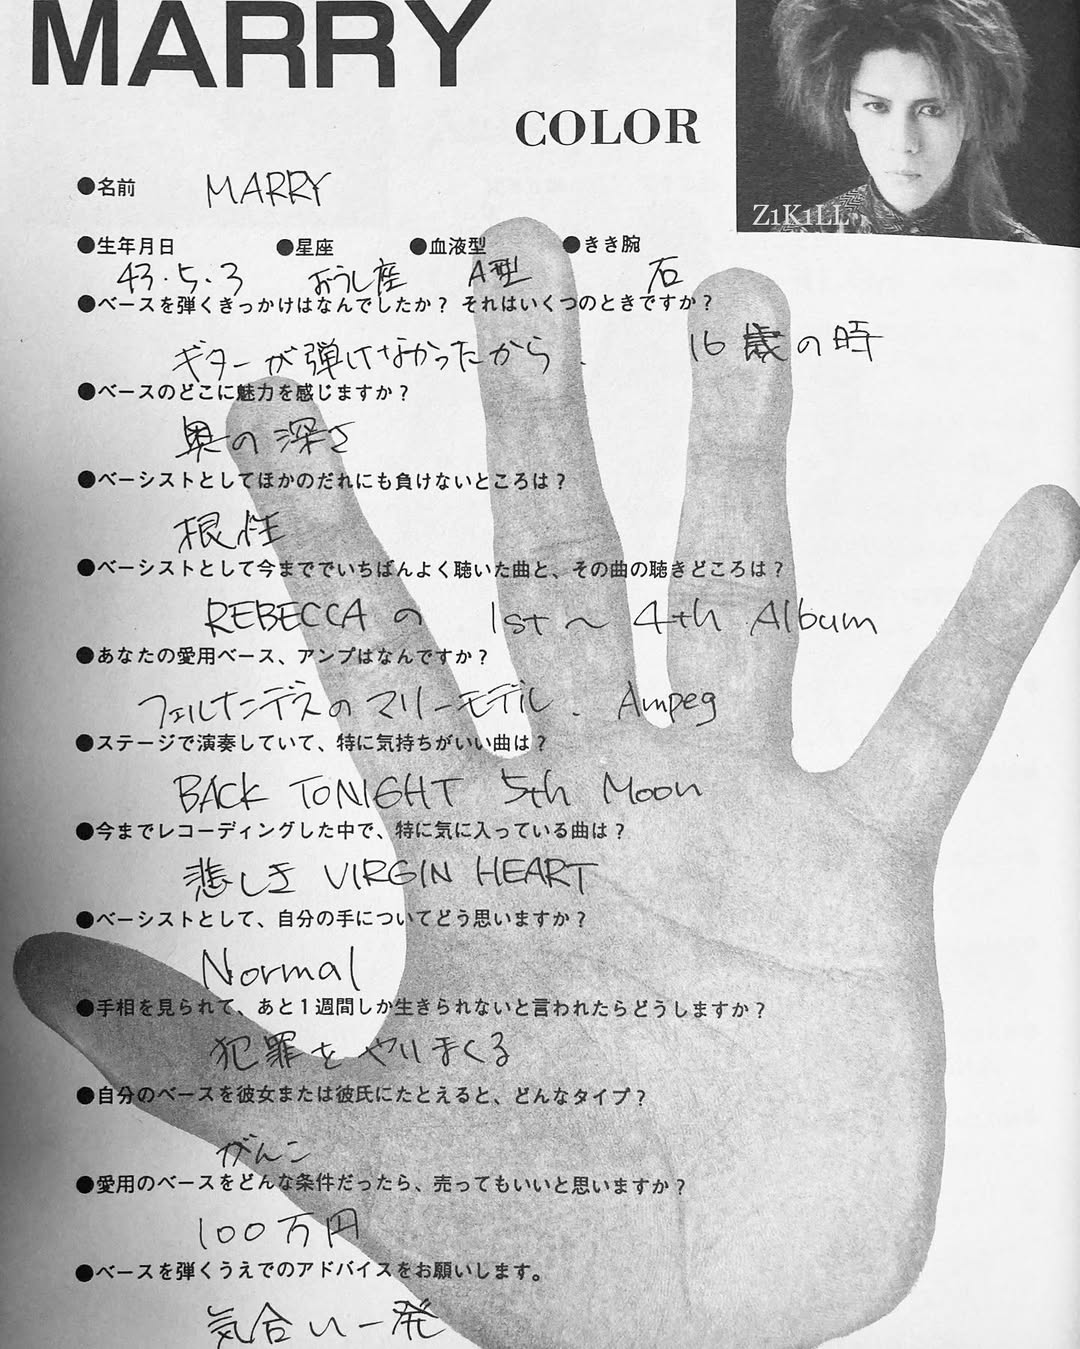 MARRY
COLOR
Z1K1LL
●名前 MARRY
●生年月日 ●星座 ●血液型 ●きき腕
43.5.3 おうし座 A型 右
●ベースを弾くきっかけはなんでしたか？ それはいくつのときですか？
ギターが弾けなかったから. 16歳の時
●ベースのどこに魅力を感じますか？
奥の深さ
●ベーシストとしてほかのだれにも負けないところは？
根性
●ベーシストとして今まででいちばんよく聴いた曲と、その曲の聴きどころは？
REBECCAの 1st～4th Album
●あなたの愛用ベース、アンプはなんですか？
フェルナンデスのマリーモデル. Ampeg
●ステージで演奏していて、特に気持ちがいい曲は？
BACK TONIGHT 5th Moon
●今までレコーディングした中で、特に気に入っている曲は？
悲しき VIRGIN HEART
●ベーシストとして、自分の手についてどう思いますか？
Normal
●手相を見られて、あと1週間しか生きられないと言われたらどうしますか？
犯罪をやりまくる
●自分のベースを彼女または彼氏にたとえると、どんなタイプ？
がんこ
●愛用のベースをどんな条件だったら、売ってもいいと思いますか？
100万円
●ベースを弾くうえでのアドバイスをお願いします。
気合い一発